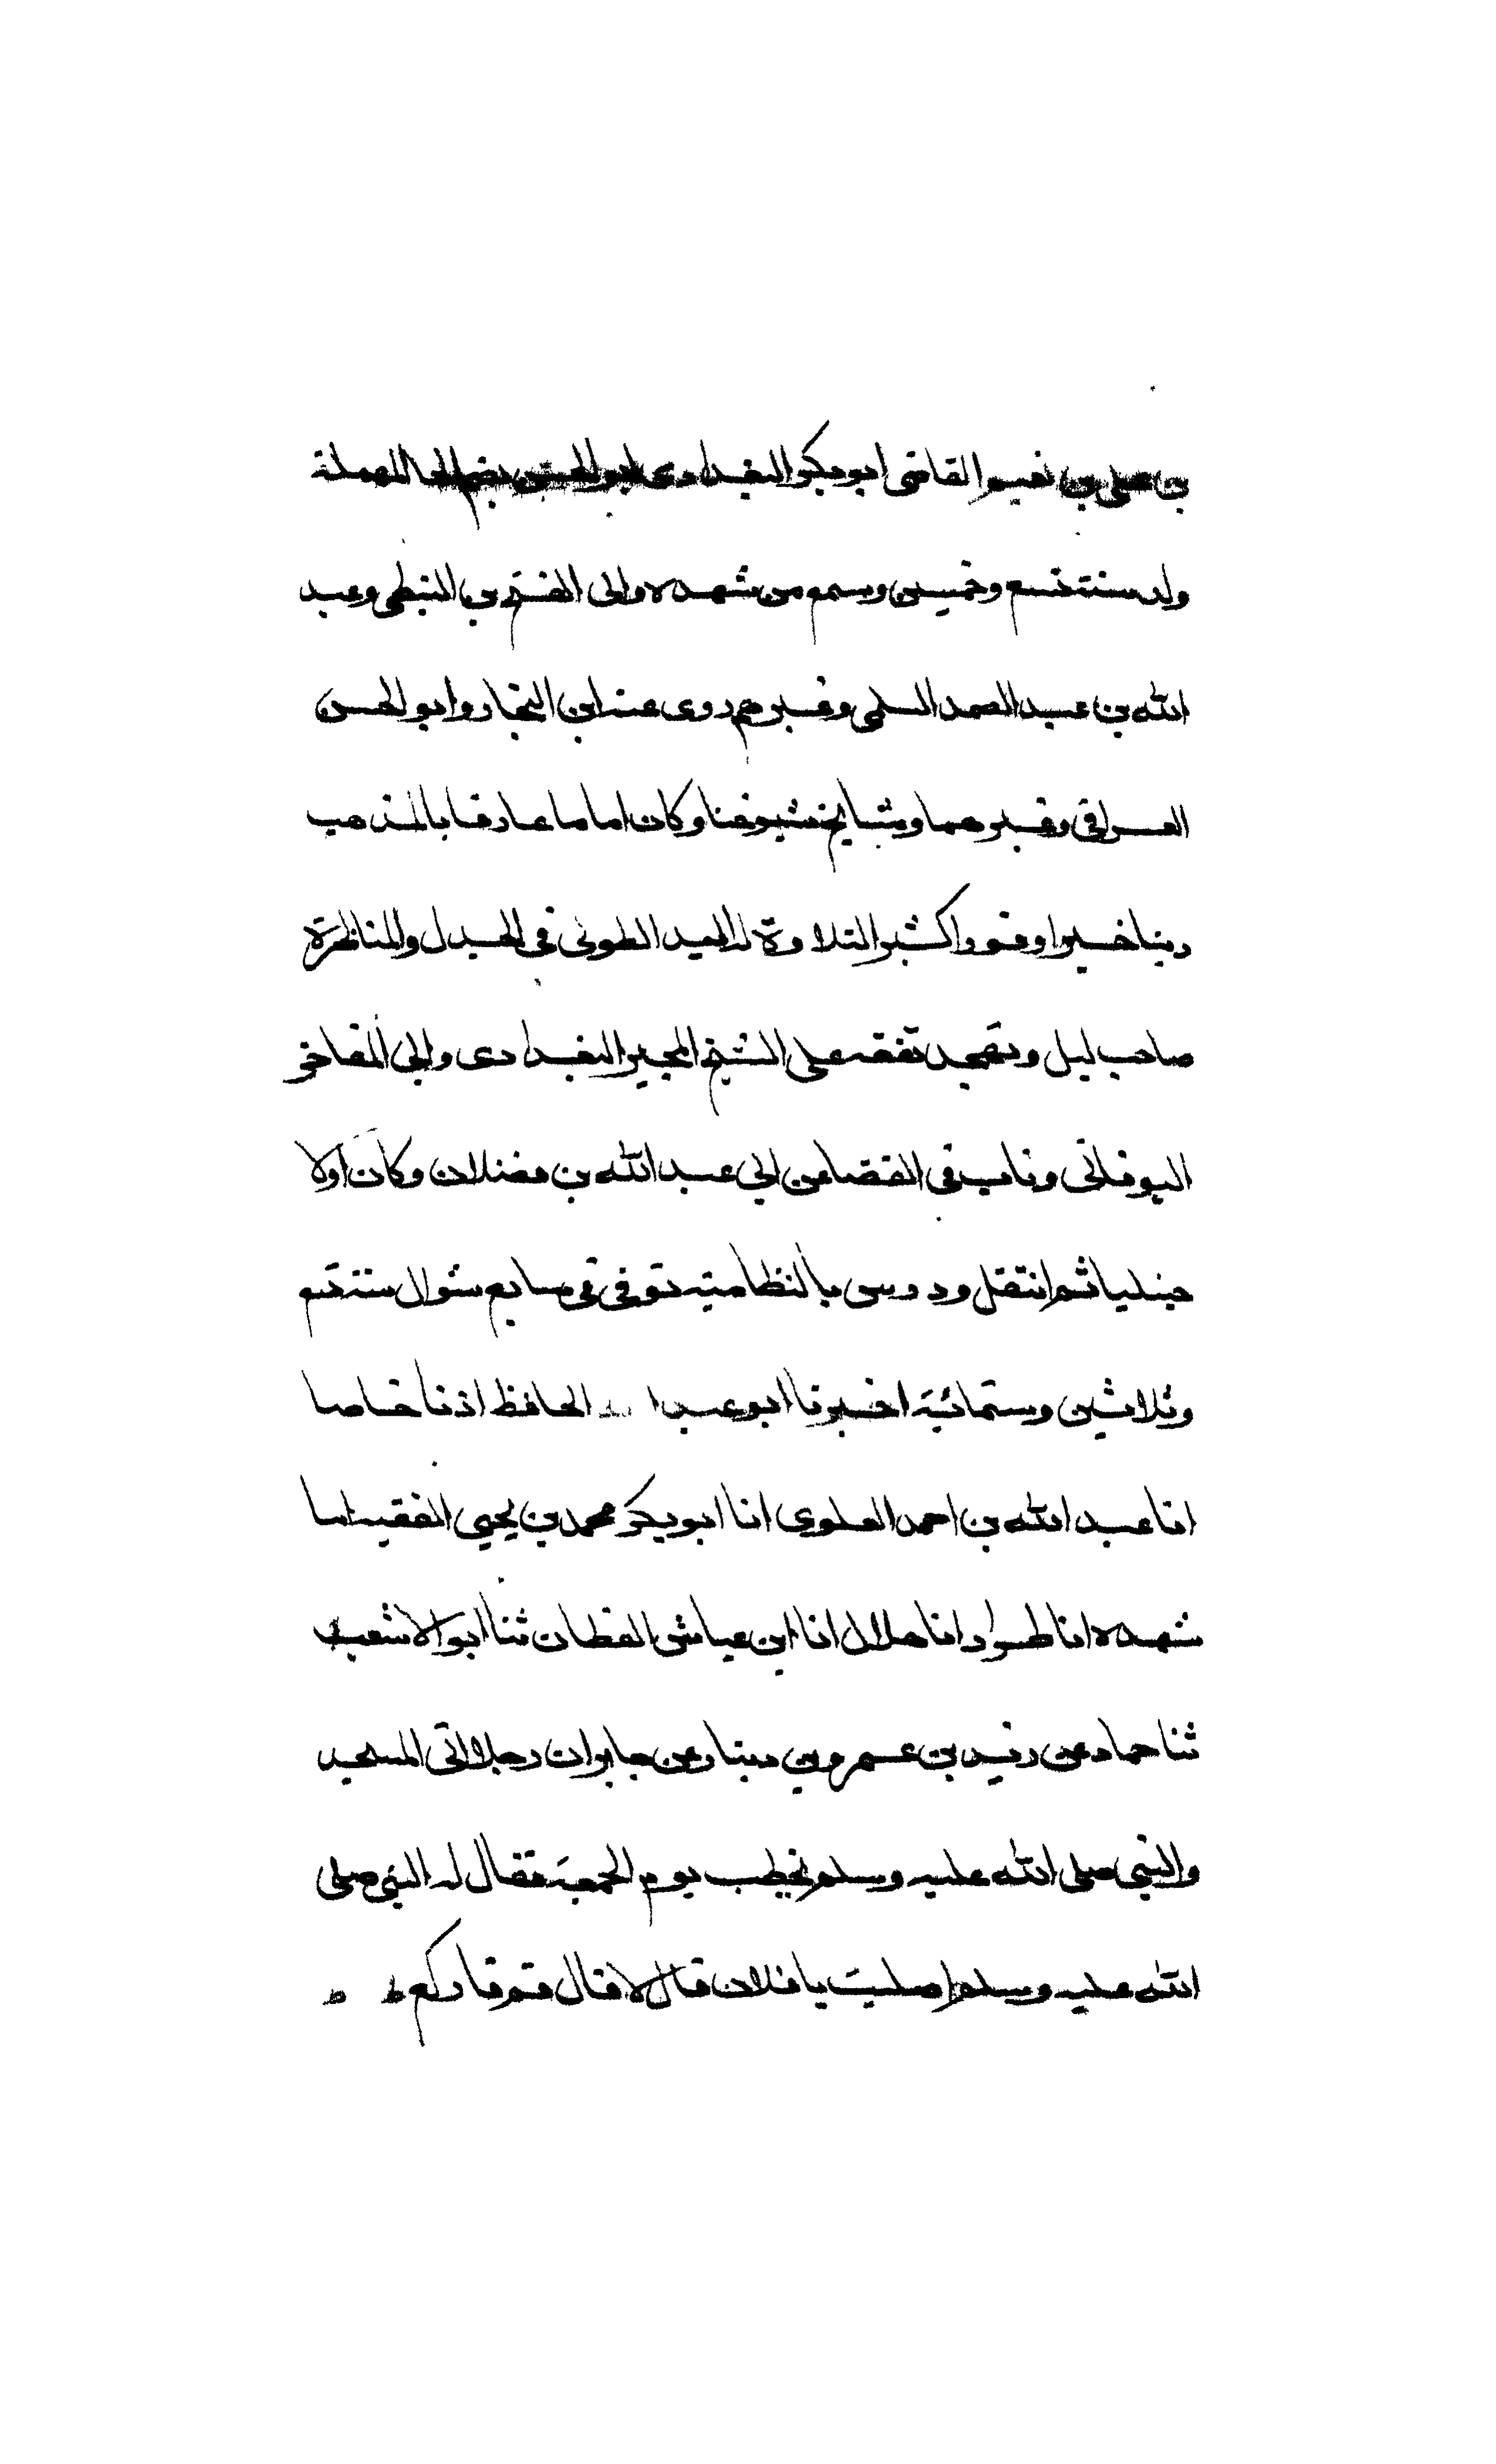 بن علي بن نعيم القاضى ابو بكر البغدادى ابو الحسن بضم الحا المهملة
ولد سنة تسع وخمسين وسمع من شهده وابى الفتح بن البطى وعبد
الله بن عبد الصمد السلمى وغيرهم روى عنه ابن النجار وابو الحسن
العراقى وغيرهما ومشايخ شيوخنا وكان اماما عارفا بالمذهب
دينا خيرا وقورا كثير التلاوة له اليد الطولى فى الجدل والمناظرة
صاحب ليل وتهجد تفقه على الشيخ المجير البغدادى وابى المفاخر
النوقانى وناب فى القضا عن ابى عبد الله بن فضلان وكان اولا
حنبليا ثم انتقل ودرس بالنظامية توفى فى سابع شوال سنة تسع
وثلاثين وستمائة اخبرنا ابو عبد الحافظ اذنا خاصا
انا عبد الله بن احمد العلوى انا ابو بكر محمد بن يحيى الفقيه انبا
شهده انا طراد انا هلال انا ابن عياش القطان ثنا ابو الاشعث
ثنا حماد عن زيد بن عمرو بن دينار عن جابر ان رجلا اتى المسجد
والنبى صلى الله عليه وسلم يخطب يوم الجمعة فقال له النبى صلى
الله عليه وسلم اصليت يا فلان قال لا قال قم فاركع